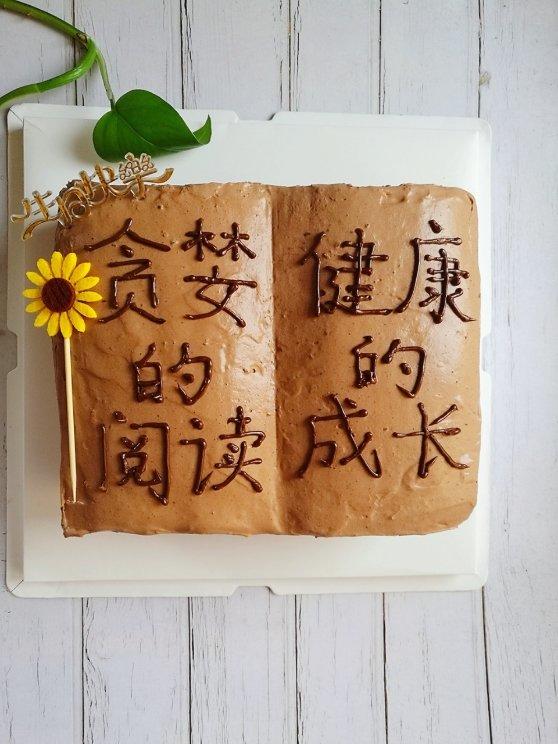 生日快樂
贪婪
的
阅读
健康
的
成长